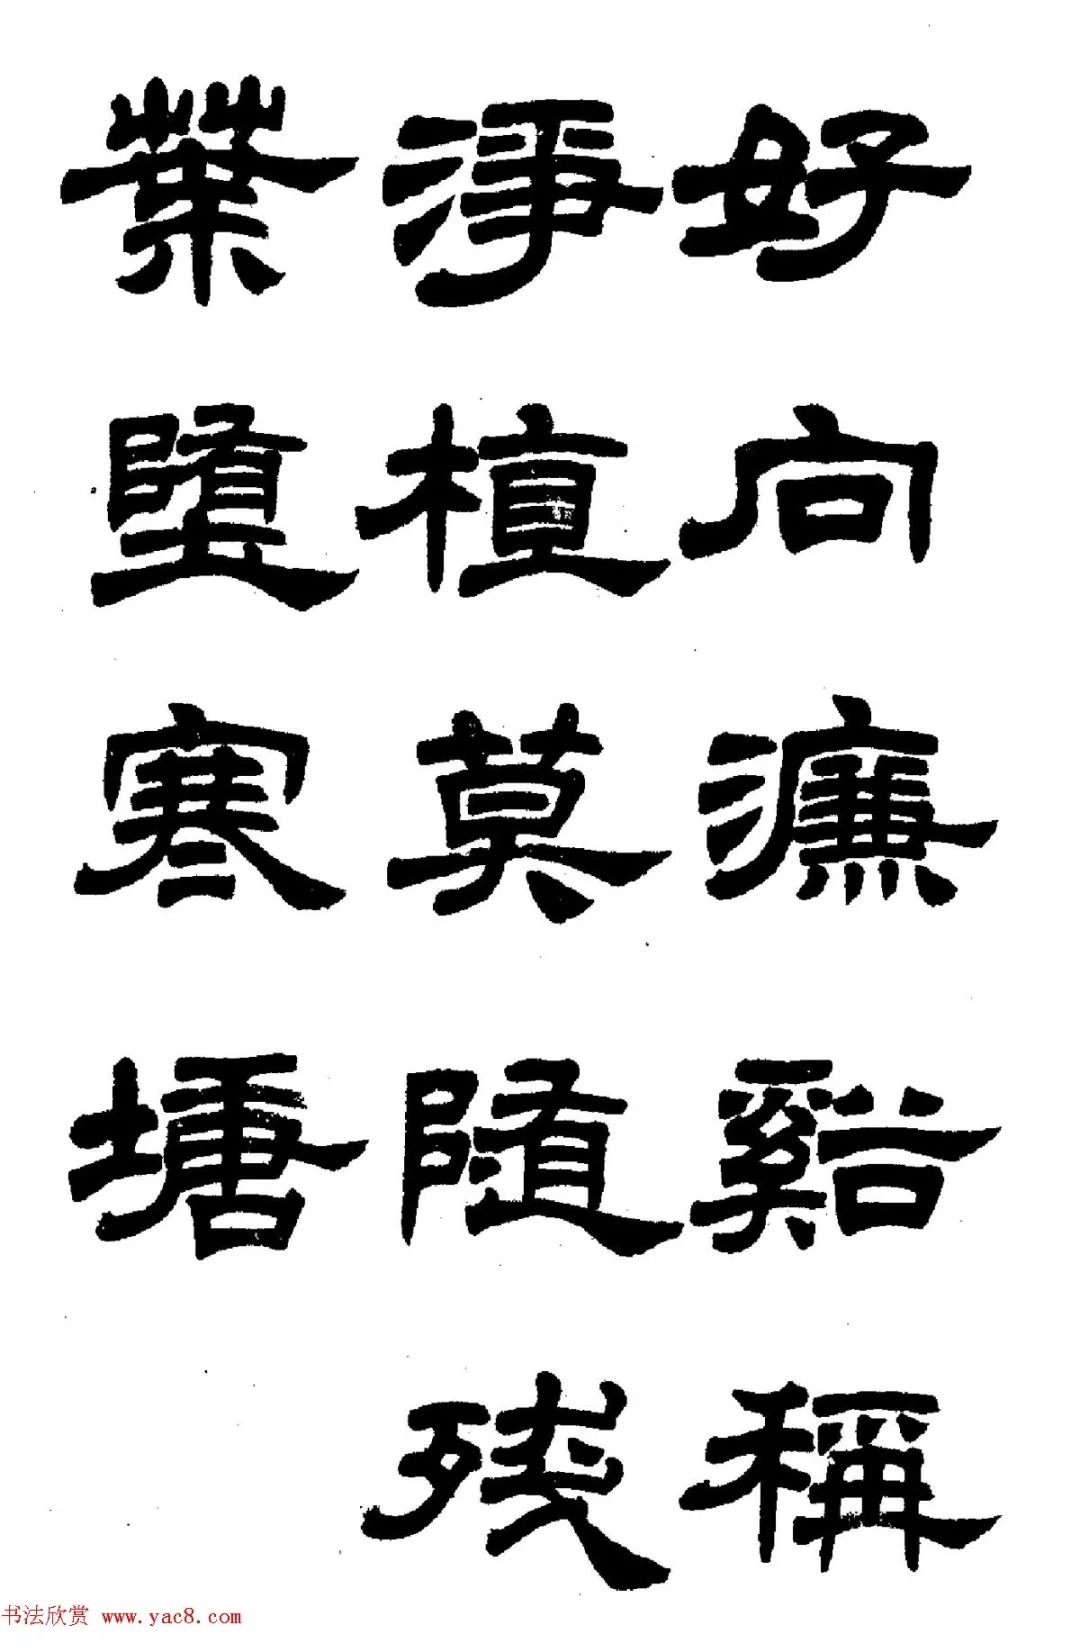 好向濂谿稱
淨植莫随殘
葉墮寒塘
书法欣赏 www.yac8.com